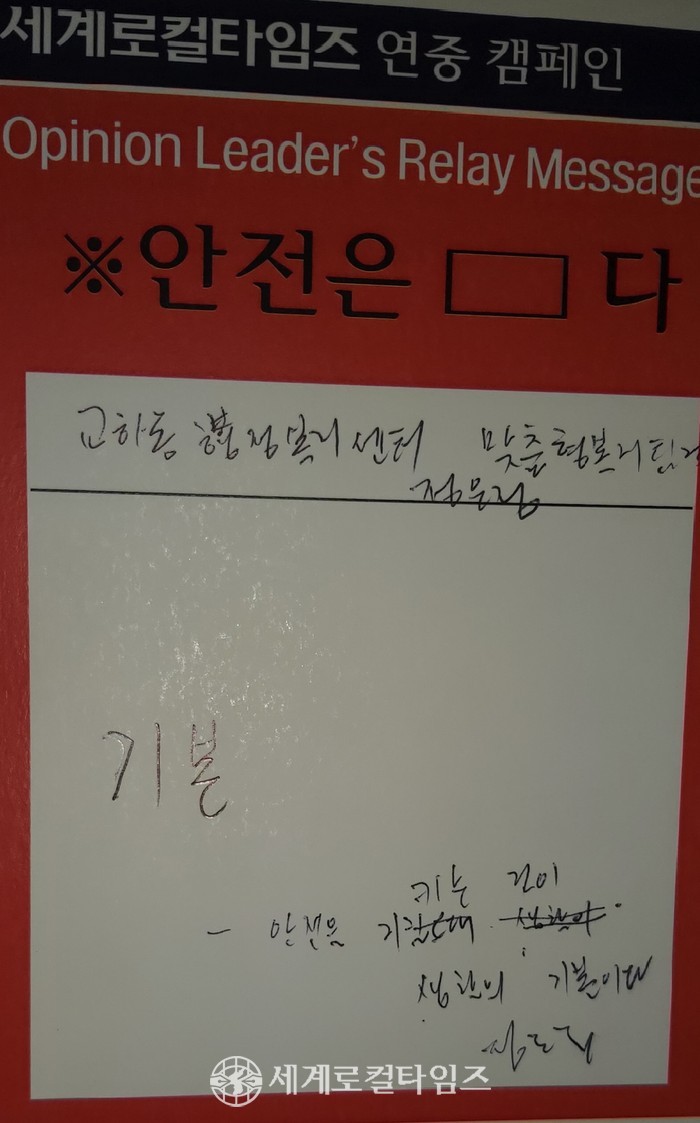 세계로컬타임즈 연중 캠페인
Opinion Leader's Relay Message
※안전은 □ 다
교하동 행정복지센터 맞춤형복지팀
정은정
기본
키는 것이
- 안전을
생활의 기본이다
세계로컬타임즈